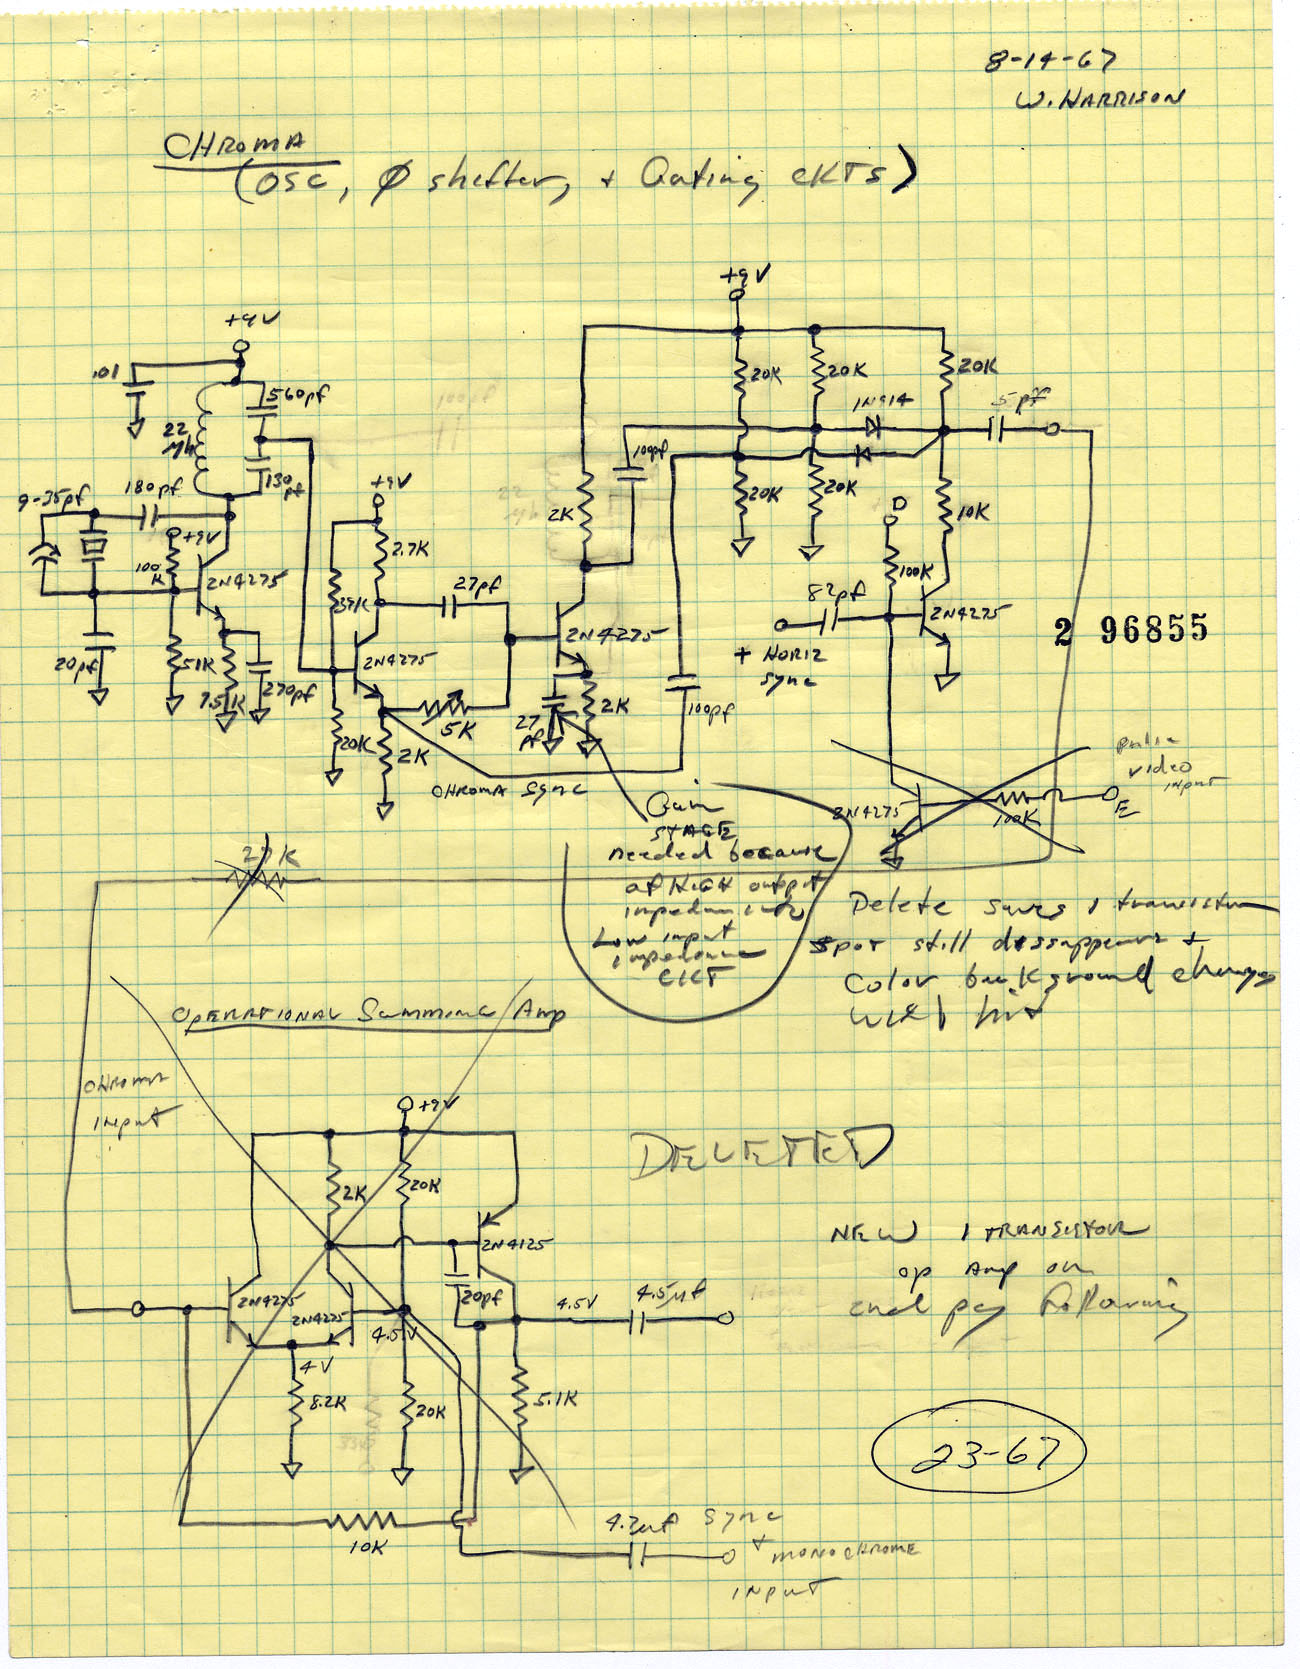 8-14-67
W. HARRISON
CHROMA
(OSC, Ø shifter, + Gating CKTS)
+9V
+9V
.01
560pf
20K
20K
20K
1N914
5pf
22
μh
130
pf
100pf
9-35pf
180pf
+9V
+9V
2K
20K
20K
10K
D
100
K
2N4275
2.7K
39K
27pf
100K
82pf
2N4275
2N4275
2N4275
2 96855
+ HORIZ
sync
20pf
51K
7.5K
270pf
5K
27
pf
2K
100pf
20K
2K
CHROMA Sync
pulse
video
input
E
2N4275
100K
Gain
STAGE
needed because
of HIGH output
impedance into
Low input
impedance
CKT
27K
Delete saves 1 transistor
spot still dissappears +
Color background changes
well hit
OPERATIONAL Summing Amp
CHROMA
INput
+9V
DELETED
2K
20K
2N4125
NEW 1 TRANSISTOR
op Amp on
2nd pg following
2N4275
2N4275
20pf
4.5V
4.5V
4.5μf
4V
8.2K
20K
5.1K
23-67
10K
4.7uf
Sync
+
MONOCHROME
INput